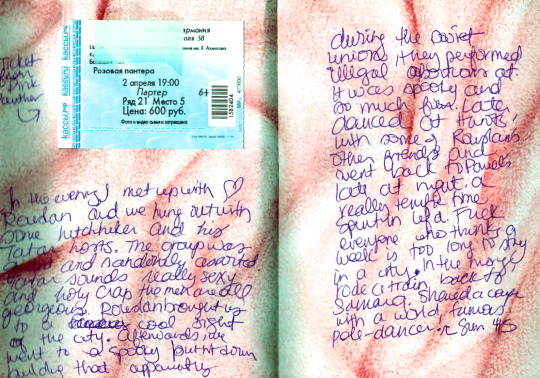 Ticket
from
Pink
Panther
кассы.рф kassy.ru кассы.рф
рмония
58
им. Х. Ахметова
Розовая пантера
2 апреля 19:00
Партер
Ряд 21 Место 5
Цена: 600 руб.
6+
Фото и видео съемка запрещена
1582404
In the evening I met up with
Rowdan and we hung out with
some hitchhiker and his
Tatar hosts. The group was
and randomly assorted.
Tatar sounds really sexy
and holy crap the men are all
gorgeous. Rowdan brought us
to a cool sight
of the city. Afterwards, we
went to a spooky burnt down
building that apparently
during the soviet
unions they performed
illegal abortions at.
It was spooky and
so much fun. Later
danced at
with some of Rowdan's
other friends and
went back to
late at night. a
really terrific time
spent in Ufa. Fuck
everyone who thinks a
week is too long to stay
in a city. In the morning
rode a train back to
Samara. Shared a coupe
with a world famous
pole-dancer. Sun 4/5